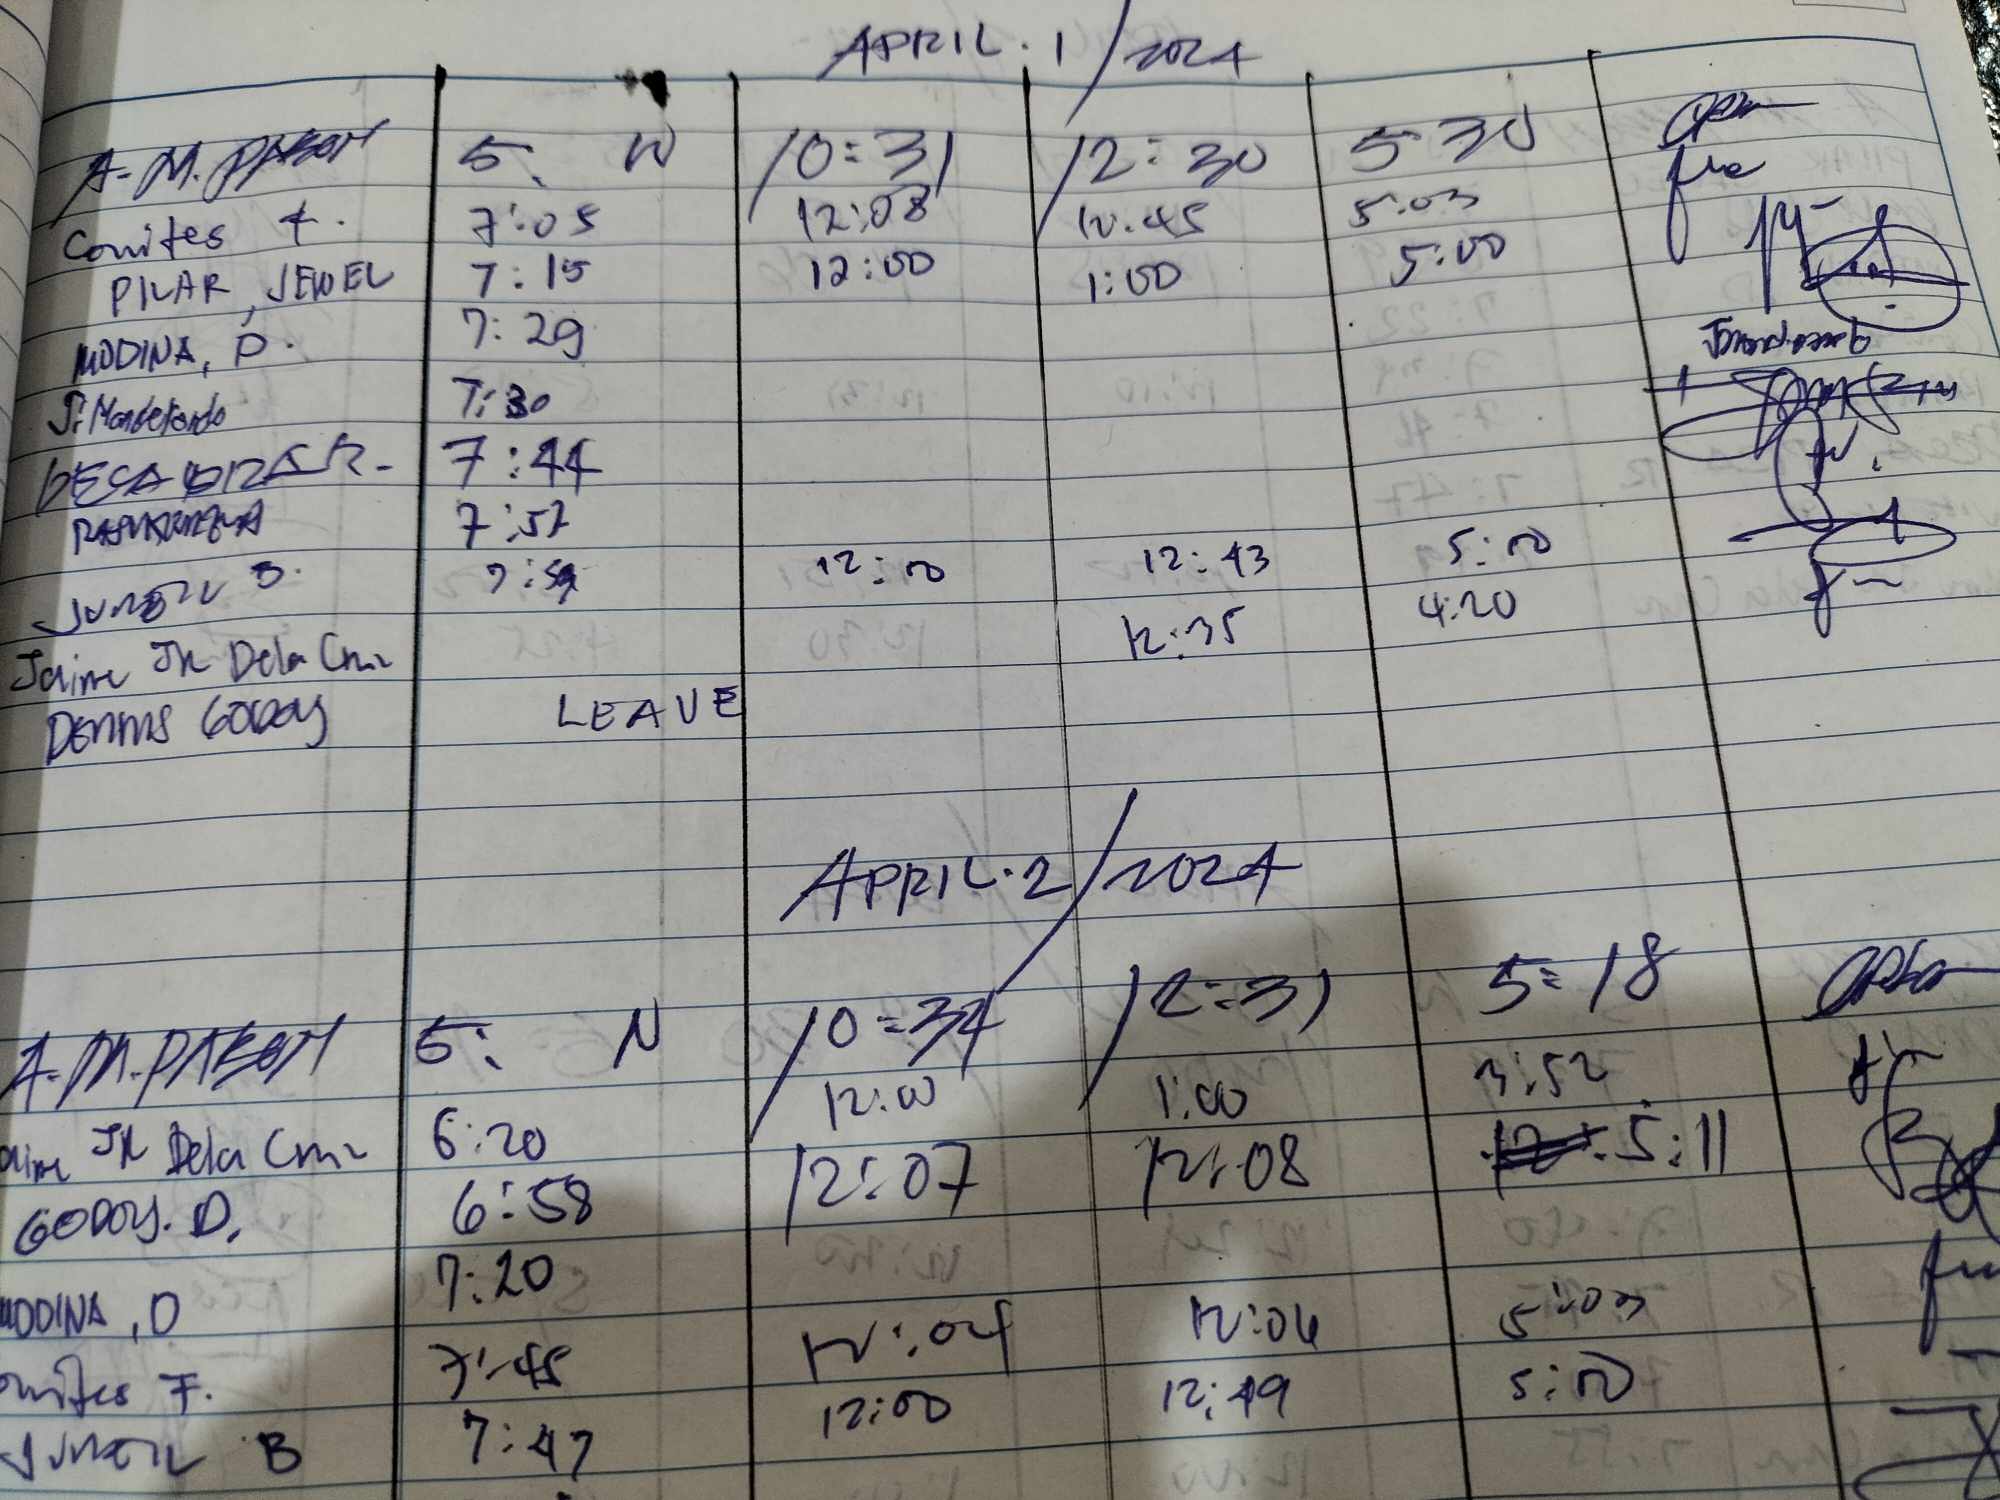 APRIL. 1/2024
A-M. PABOM 5: N 10:31 12:30 5 30
Comites f. 7:05 12:08 12:45 5:03
PILAR, JEWEL 7:15 12:00 1:00 5:00
MODINA, D. 7:29
7:30
7:44
7:57
JUNEIL B. 7:59 12:00 12:43 5:00
Jaime JR Dela Cruz 12:35 4:20
DENNIS GODOY LEAVE
APRIL. 2/2024
A-M. PABOM 5: N 10:34 12:31 5:18
aime JR Dela Cruz 6:20 12:00 1:00 3:52
GODOY. D. 6:58 12:07 12:08 5:11
MODINA, D 7:20
omites F. 7:45 12:04 12:06 5:03
JUNEIL B 7:47 12:00 12:49 5:00